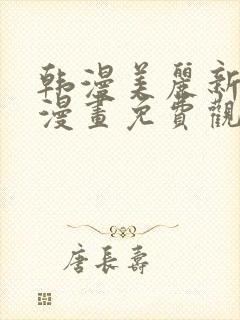 韩漫美麗新
漫畫免費觀
唐長壽